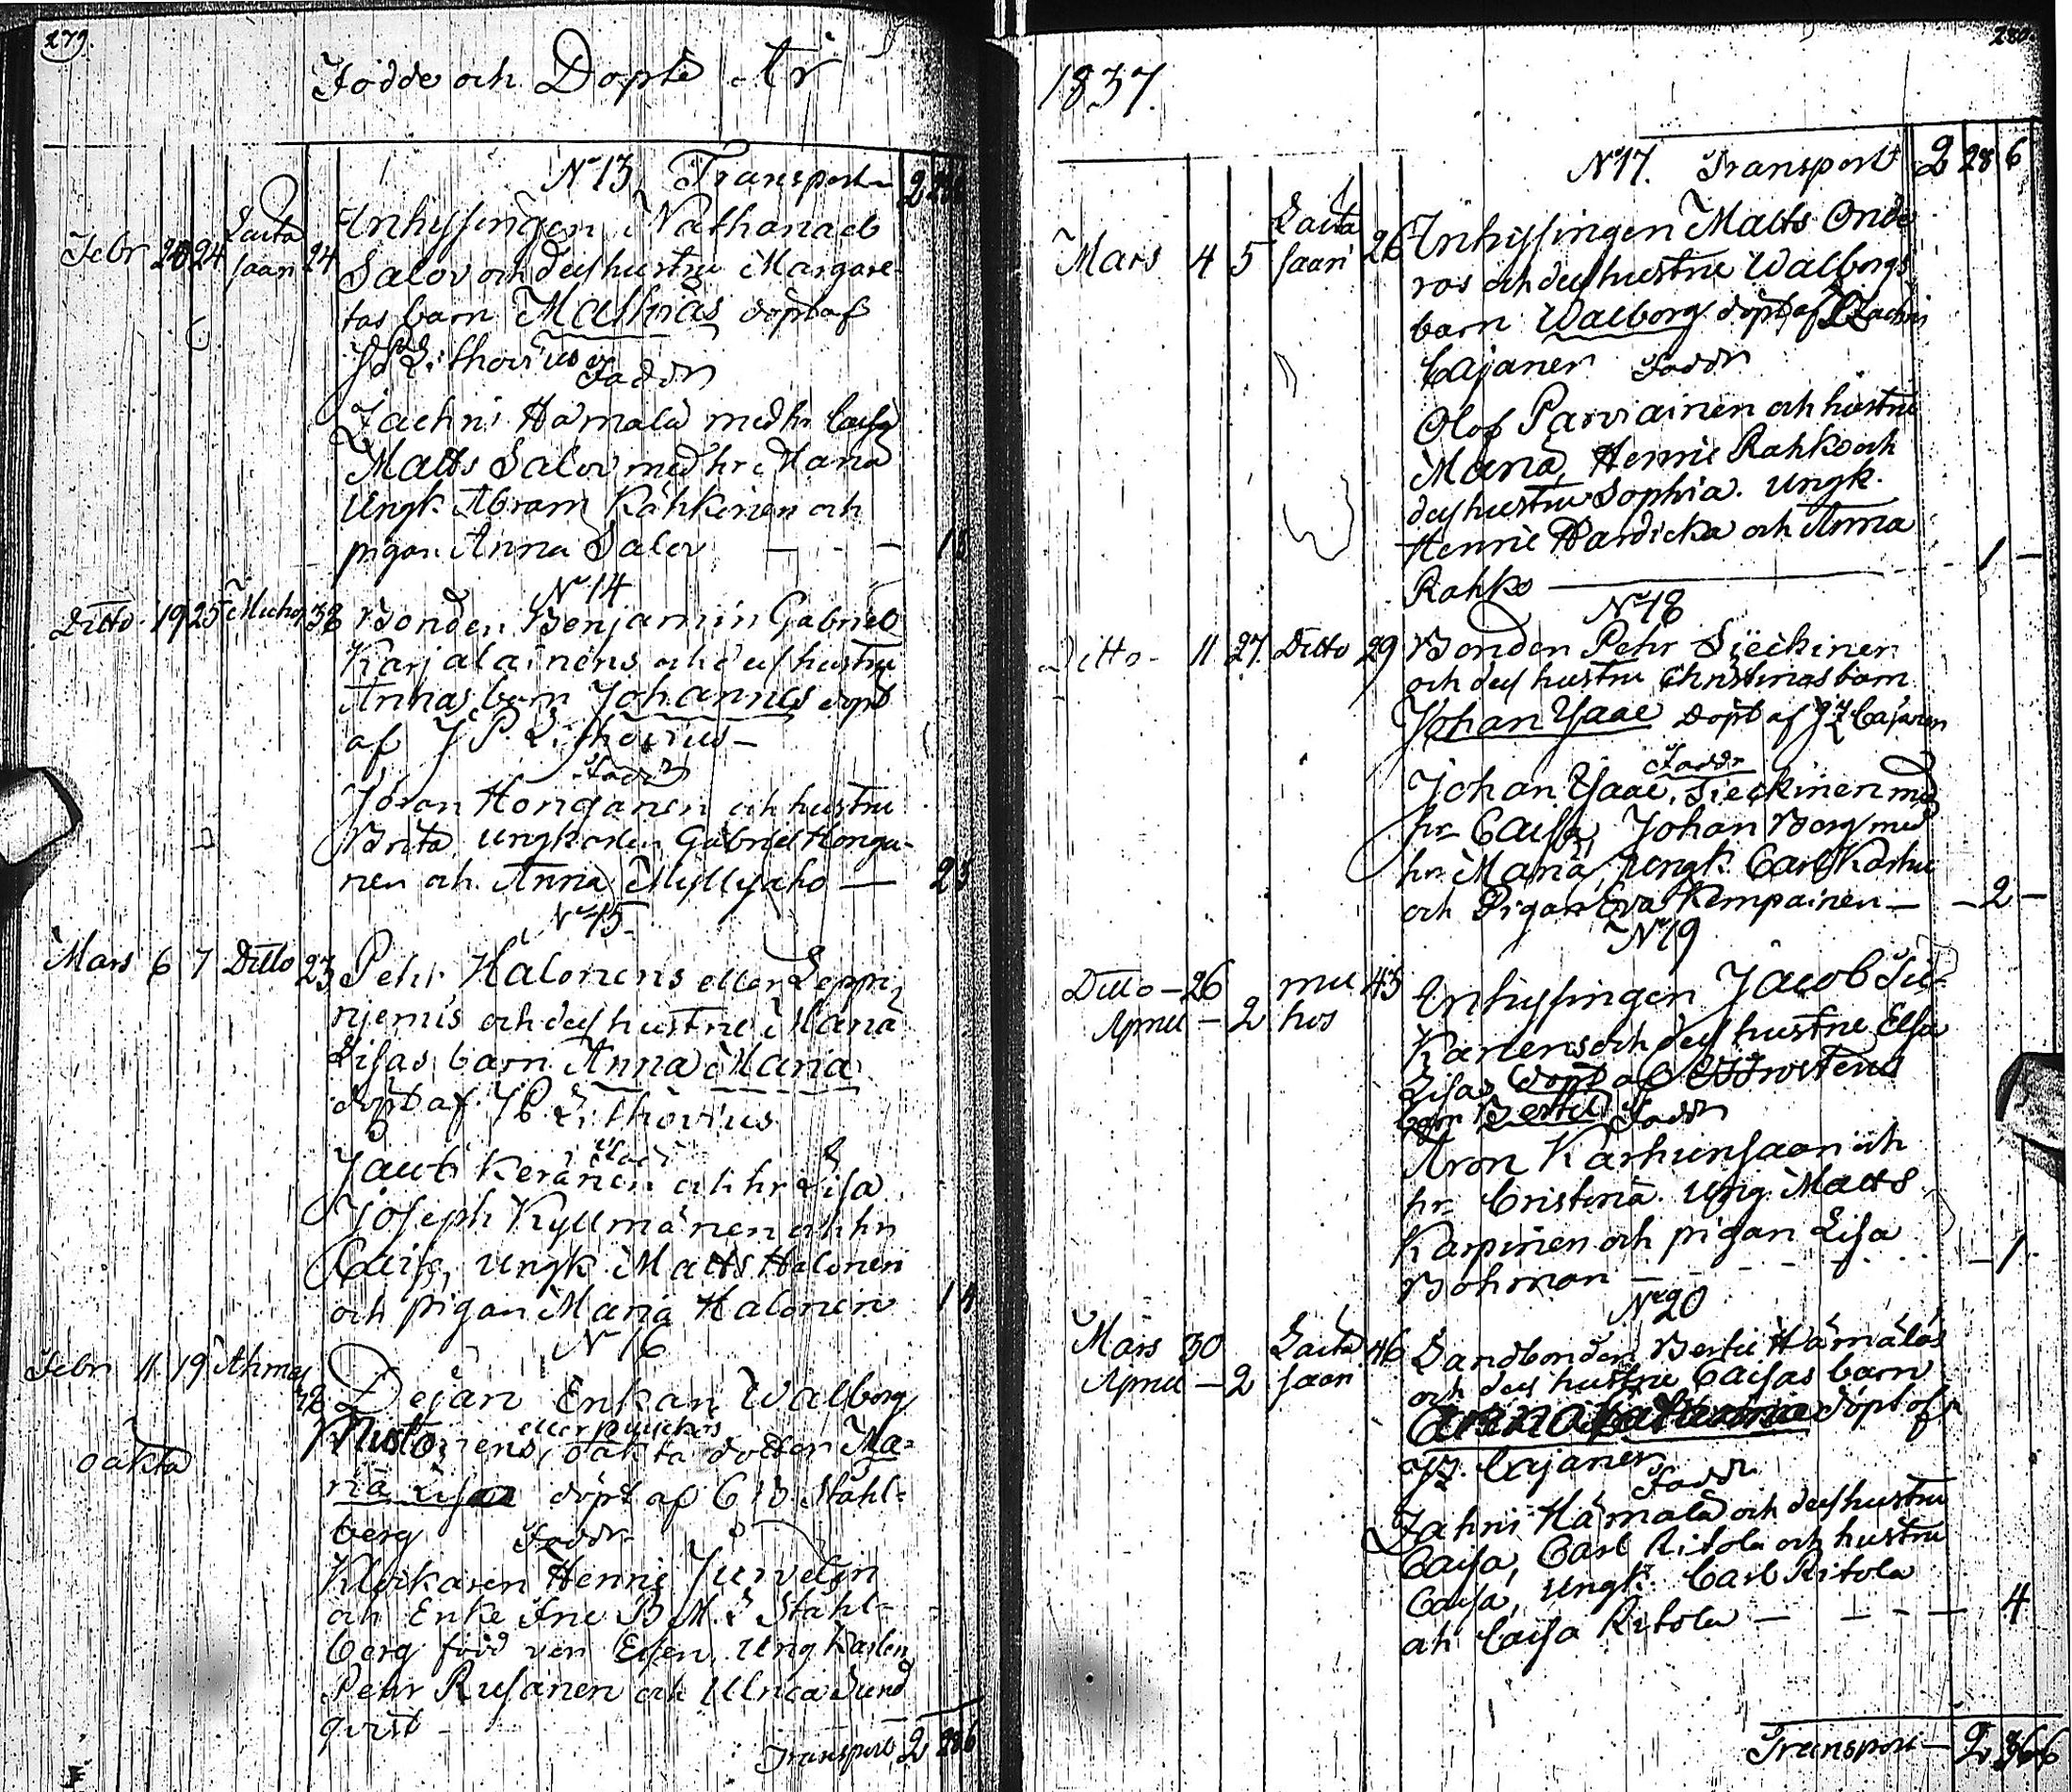 279.
Födde och Döpte År
N 13 Transport 2
Febr 20 24 Laita saari 24
Inhysingen Nathanael
Salov och dess hustru Margare-
tas barn Mathias döpt af
J P Lithovius
Faddr
Zachri Hämälä med hr Caisa
Matts Salov med hr Maria
Ungk. Abram Kähkönen och
pigan Anna Salov — - —
N 14
Ditto 19 25 Muhos 38 Bonden Benjamin Gabriel
Karjalainens och dess hustru
Annas barn Johannes döpt
af J P Lithovius —
Faddr
Jöran Honganen och hustru
Brita, ungkarlen Gabriel Honga-
nen och Anna Myllyaho —
N 15
Mars 6 7 Ditto 23 Pehr Halonens eller Leppi-
niemis och dess hustru Maria
Lisas barn Anna Maria
döpt af J P Lithovius
Fadd
Keränen och hr Lisa
Joseph Kyllmänen och hr
Caisa, Ungk Matts Halonen
och pigan Maria Halonen 14
N 16
Febr 11 19 42
oäkta
Dejan Enkan Walborg
Mustonens, oäkta dotter Ma-
ria Lisa döpt af C W Ståhl-
berg
Faddr
Klockaren Henric Jurvelin
och Enke Fru B M. S Ståhl-
berg född von Essen, Ungkarlen
Pehr Rusanen och Ulrica Sund
qvist
Transport 2 286
280.
1837.
N 17. Transport 2 28 6
Mars 4 5 Laita saari 26
Inhysingen Matts Onde
ros och dess hustru Walborgs
barn Walborg döpt af
Cajaner Faddr
Olof Parviainen och hustru
Maria, Henric Rahko och
dess hustru Sophia. Ungk.
Henric Hardicka och Anna
Rahko — 1 —
N 18
Ditto - 11 27. Ditto 29 Bonden Pehr Siekinen
och dess hustru Christinas barn
Johan Isaac döpt af J Z Cajanen
Faddr
Johan Isaac Siekinen med
hr Caisa, Johan Borg med
hr Maria, Ungk. Carl Karhu
och Pigan Eva Kempainen — 2 —
N 19
Ditto - 26 mu 45
April - 2 hos
Inhysingen Jacob Sie-
Kanens och dess hustru Elsa
Lisas döpt af
barn Bertil Faddr
Aron Karhunsaari och
hr Cristina. Ung. Matts
Karpinen och pigan Lisa
Bohman — 1
N 20
Mars 30 Laita 46
April - 2 saari
Landbonden Bertil Hämäläs
och dess hustru Caisas barn
döpt af
J Z. Cajaner
Faddr
Zahri Hämälä och dess hustru
Caisa, Carl Ritola och hustru
Caisa, Ungk. Carl Ritola
och Caisa Ritola — - - — 4
Transport — 2 36 6